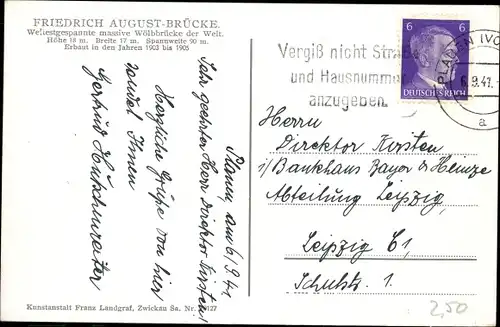 FRIEDRICH AUGUST-BRÜCKE.
Weitestgespannte massive Wölbbrücke der Welt.
Höhe 18 m. Breite 17 m. Spannweite 90 m.
Erbaut in den Jahren 1903 bis 1905
Plauen, am 6/9.41
Sehr geehrter Herr Direktor Kirsten!
Herzliche Grüße von hier
sendet Ihnen
Gertrud
Kunstanstalt Franz Landgraf, Zwickau Sa. Nr.
Vergiß nicht Straße
und Hausnummer
anzugeben
PLAUEN (VO
6.9.41.
a
6 6
DEUTSCHES REICH
Herrn
Direktor Kirsten
i/ Bankhaus Bayer & Heinze
Abteilung Leipzig
Leipzig C1
Schulstr. 1.
2,50